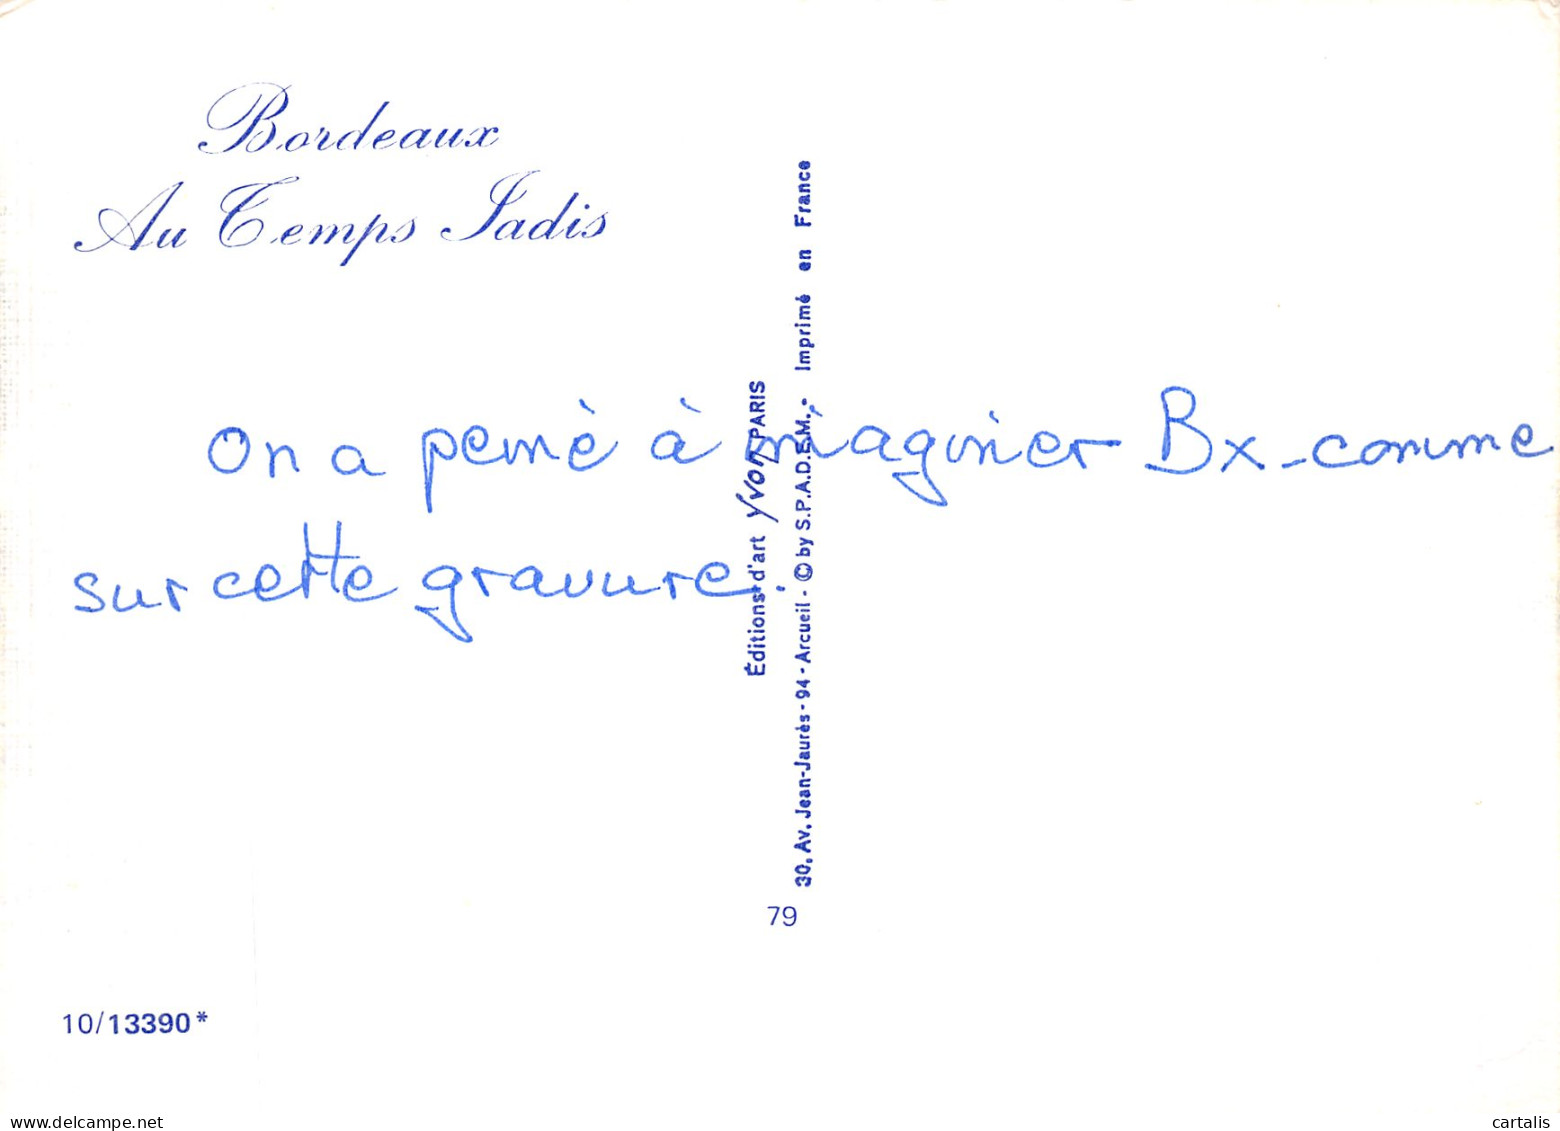 Bordeaux
Au Temps Jadis
On a peine à imaginer Bx comme
sur cette gravure.
Éditions d'art Yvon PARIS
30, Av. Jean-Jaurès - 94 - Arcueil - © by S.P.A.D.E.M. - Imprimé en France
79
10/13390*
www.delcampe.net
cartalis